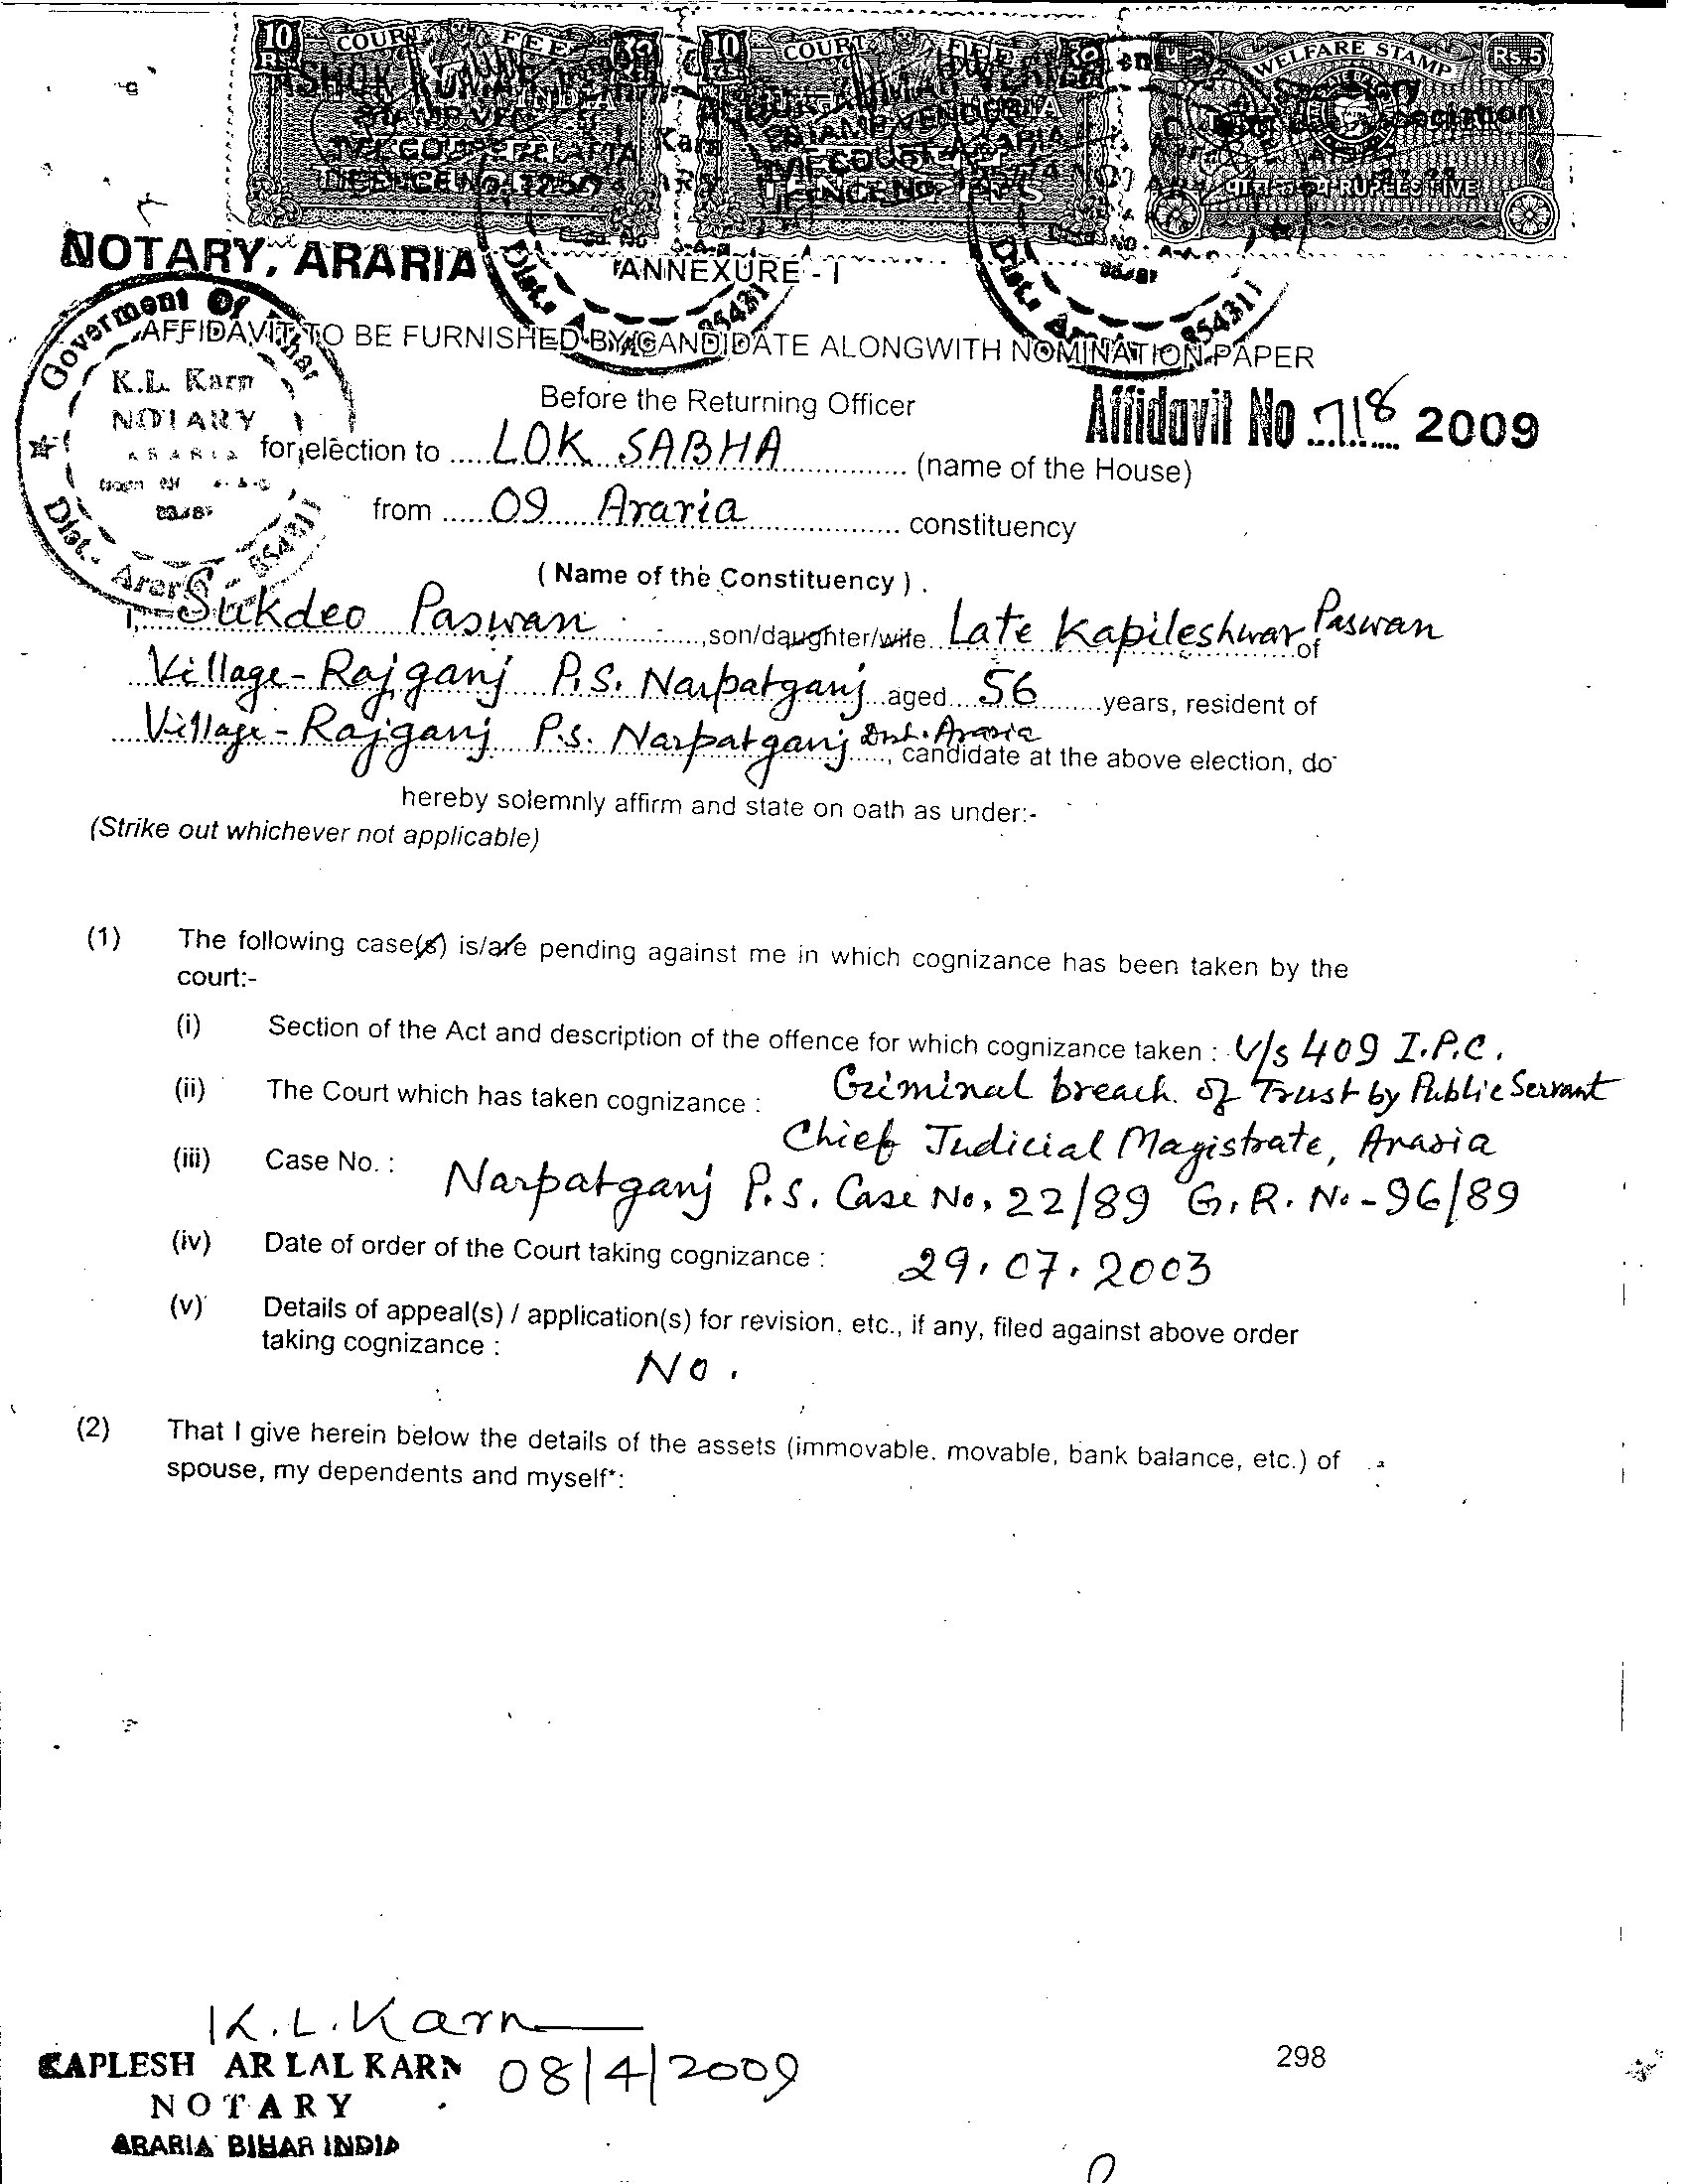 10 COURT FEE
RS
10 COURT FEE
WELFARE STAMP Rs.5
RUPEES FIVE
NOTARY, ARARIA
ANNEXURE - I
AFFIDAVIT TO BE FURNISHED BY CANDIDATE ALONGWITH NOMINATION PAPER
Goverment Of Bihar
K.L. Karn
NOTARY
ARARIA
Dist.- Araria - 854311
Before the Returning Officer
Affidavit No 718 2009
for election to LOK SABHA (name of the House)
from 09 Araria constituency
( Name of the Constituency ) .
I, Sukdeo Paswan ,son/daughter/wife Late Kapileshwar Paswan of
Village - Rajganj P.S. Narpatganj aged 56 years, resident of
Village - Rajganj P.s. Narpatganj Dist. Araria , candidate at the above election, do
hereby solemnly affirm and state on oath as under:-
(Strike out whichever not applicable)
(1) The following case(s) is/are pending against me in which cognizance has been taken by the
court:-
(i) Section of the Act and description of the offence for which cognizance taken : U/s 409 I.P.C.
Criminal breach of Trust by Public Servant
(ii) The Court which has taken cognizance :
Chief Judicial Magistrate, Araria
(iii) Case No. : Narpatganj P.S. Case No. 22/89 G.R. No - 96/89
(iv) Date of order of the Court taking cognizance : 29.07.2003
(v) Details of appeal(s) / application(s) for revision, etc., if any, filed against above order
taking cognizance :
No.
(2) That I give herein below the details of the assets (immovable, movable, bank balance, etc.) of
spouse, my dependents and myself*:
K.L.Karn
KAPLESH AR LAL KARN 08/4/2009
NOTARY
ARARIA BIHAR INDIA
298